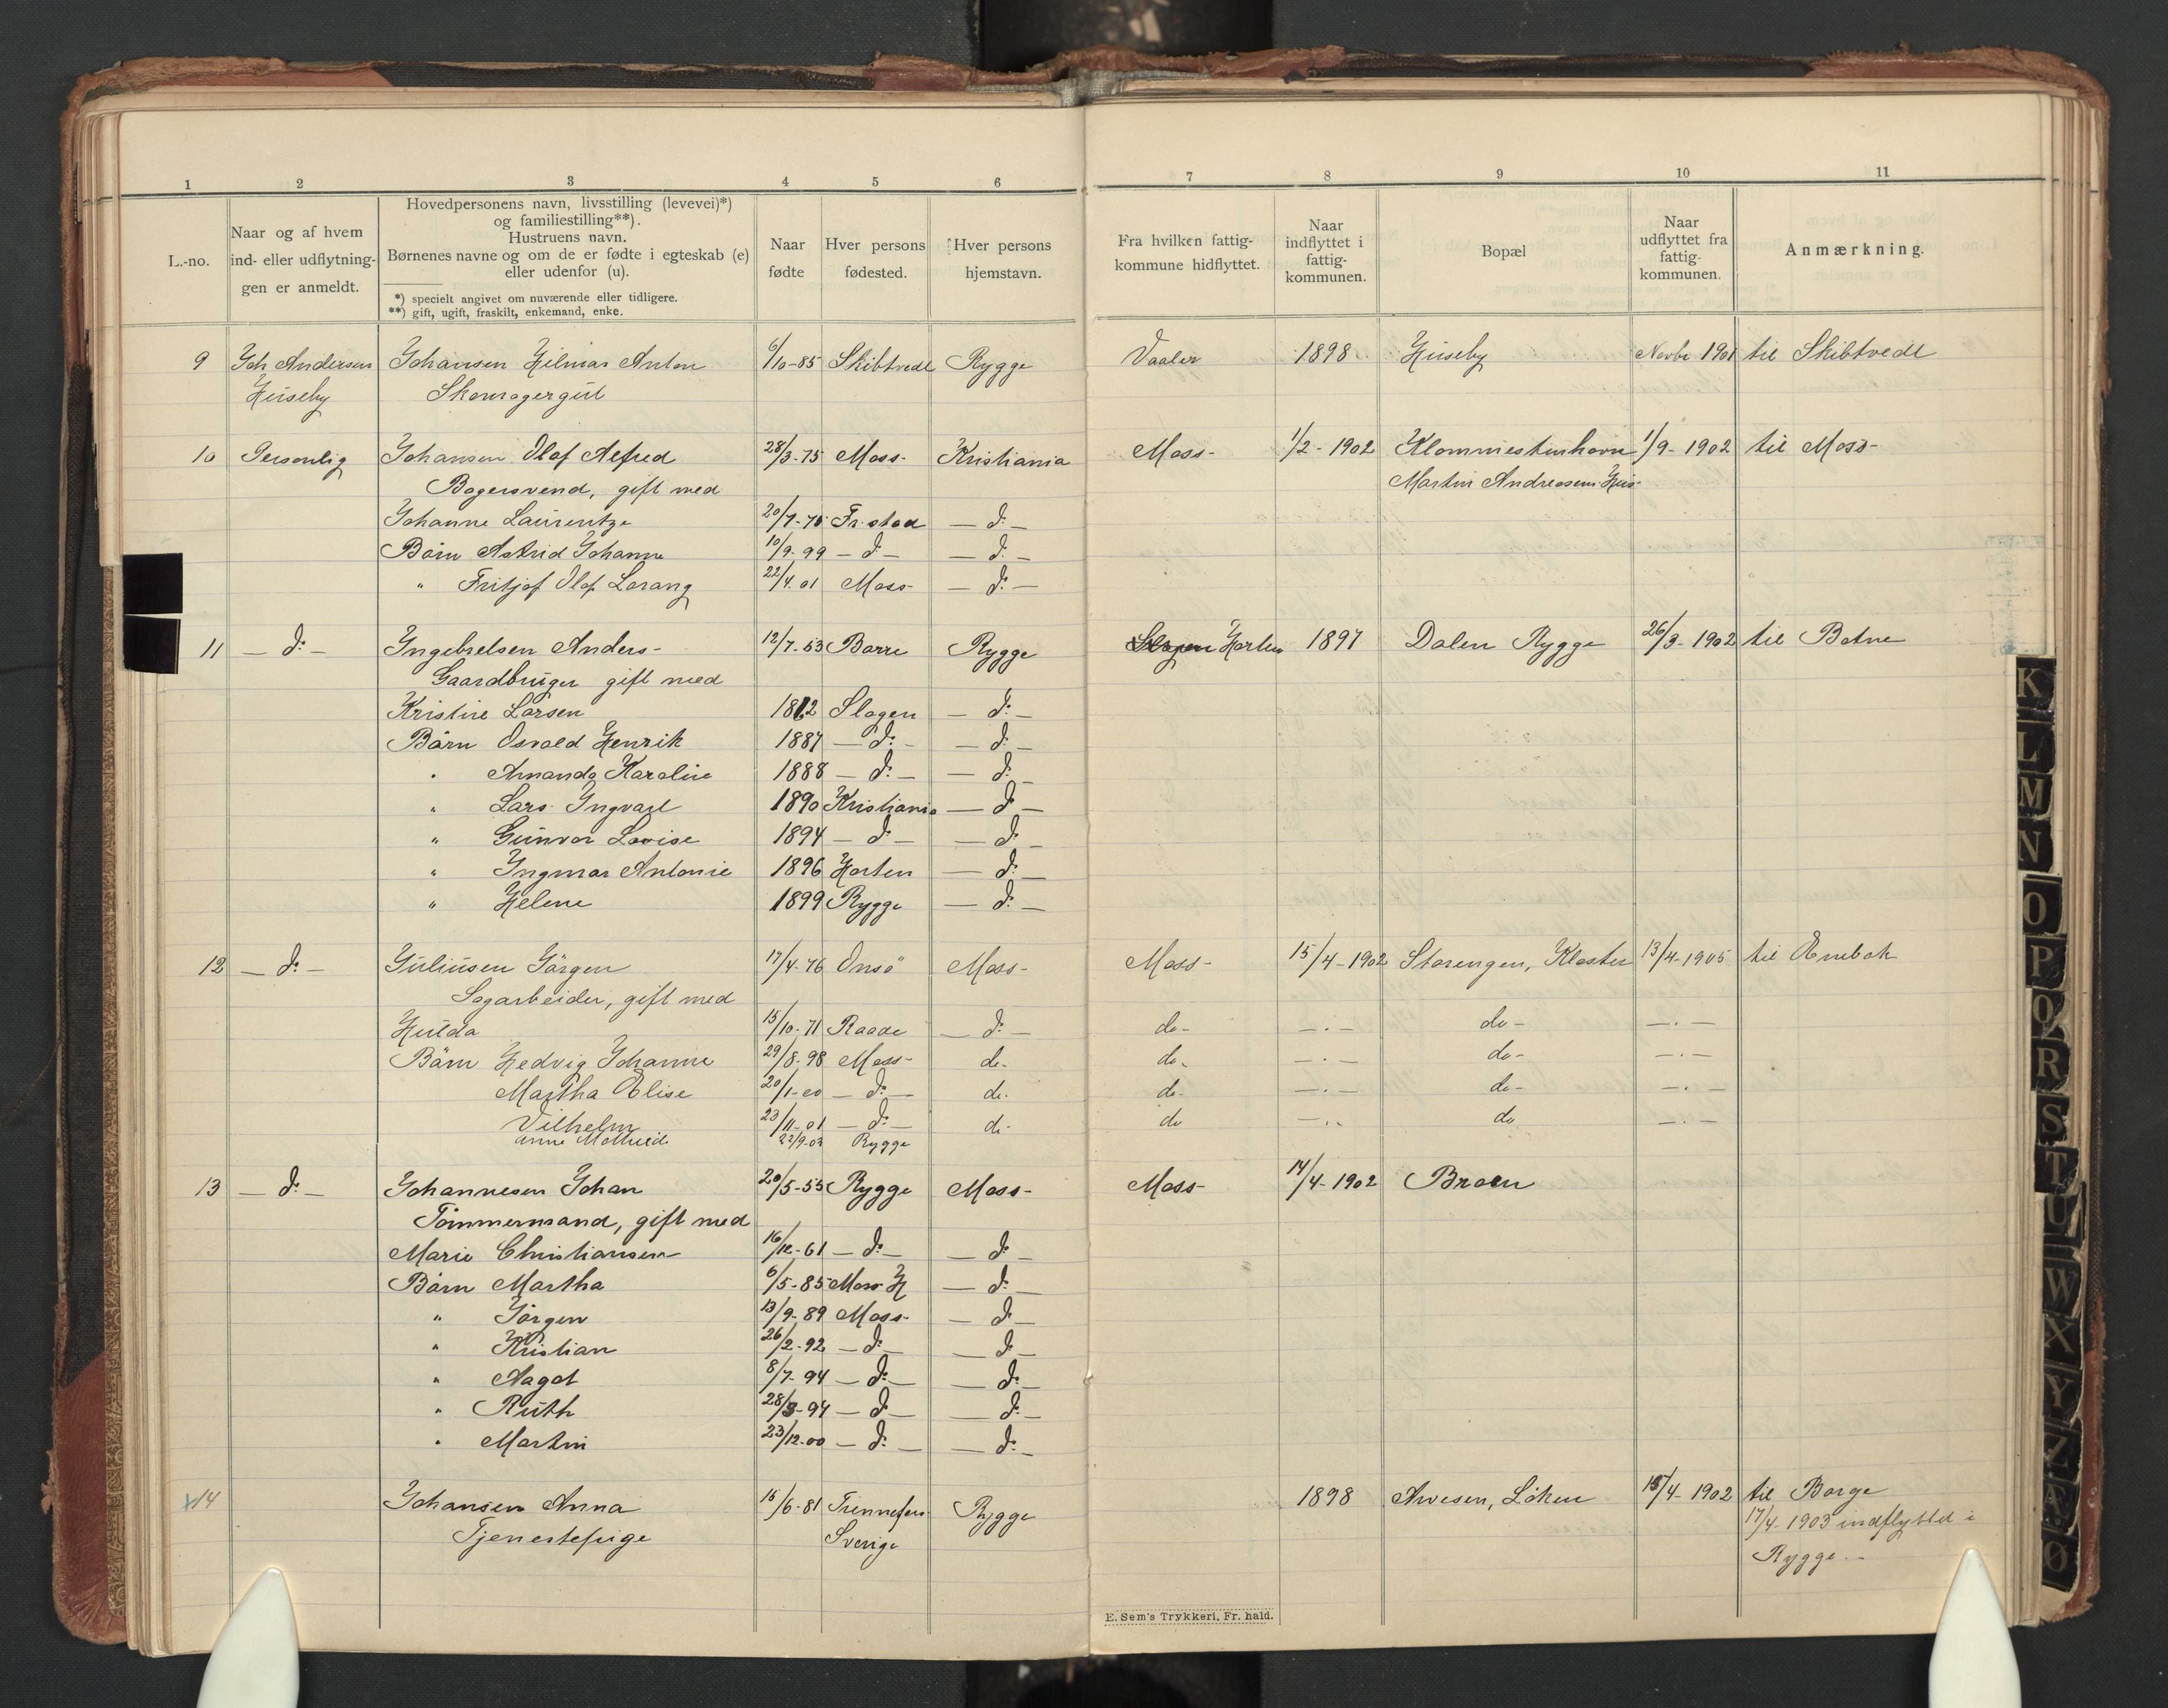 1 2 3 4 5 6 7 8 9 10 11
L.-no.
Naar og af hvem
ind- eller udflytnin-
gen er anmeldt.
Hovedpersonens navn, livsstilling (levevei)*)
og familiestilling**).
Hustruens navn.
Børnenes navne og om de er fødte i egteskab (e)
eller udenfor (u).
*) specielt angivet om nuværende eller tidligere.
**) gift, ugift, fraskilt, enkemand, enke.
Naar
fødte
Hver persons
fødested.
Hver persons
hjemstavn.
Fra hvilken fattig-
kommune hidflyttet.
Naar
indflyttet i
fattig-
kommunen.
Bopæl
Naar
udflyttet fra
fattig-
kommunen.
Anmærkning.
9 Joh Andersen Johansen Hilmar Anton 6/10-85 Skibtvedt Rygge Vaaler 1898 Huseby Novbr 1901 til Skibtvedt
Huseby Skomagergut
10 Personlig Johansen Olaf Alfred 28/3-75 Moss Kristiania Moss 1/2-1902 1/9-1902 til Moss
Bagersvend, gift med Martin Andreasens Hus
Johanne Laurentze 20/7-75 Fr.stad - d: -
Børn Astrid Johanne 10/9-99 - d - - d: -
" Fritjof Olaf Lorang 22/4.01 Moss - d: -
11 - d: - Ingebretsen Anders 12/7-53 Borre Rygge Slagen Horten 1897 Dalen Rygge 26/3-1902 til Botne
Gaardbruger gift med
Kristine Larsen 1862 Slagen - d: -
Børn Osvald Henrik 1887 - d: - - d: -
" Amanda Karoline 1888 - d: - - d: -
" Lars Ingvart 1890 Kristiania - d -
" Gunvor Lovise 1894 - d - - d -
" Ingmar Antonie 1896 Horten - d: -
" Helene 1899 Rygge - d: -
12 - d: - Juliusen Jørgen 17/4-76 Onsø Moss Moss 15/4-1902 Storengen, Kloster 13/4-1905 til Enebak
Sagarbeider, gift med
Hulda 15/10-71 Raade - d: - do - - . - do - - . -
Børn Hedvig Johanne 29/8-98 Moss do. do - - . - do - - . -
Martha Elise 20/1-00 - d: - do. do - - . - do - - . -
Vilhelm 23/11-01 - d: - do - do - . . do - . -
Anna Mathilde 22/9-03 Rygge
13 - d: - Johannesen Johan 20/5-55 Rygge Moss Moss 14/4-1902 Braen
Tømmermand, gift med
Marie Christiansen 16/12-61 - d: - - d: -
Børn Martha 6/5-85 Moss H - d: -
" Jørgen 13/9-89 Moss - d: -
" Kristian 26/2-92 - d: - - d: -
" Aagot 8/7-94 - d: - - d: -
" Ruth 28/3-97 - d - - d: -
" Martin 23/12-00 - d: - - d: -
x14 Johansen Anna 15/6-81 Rygge 1898 Arvesen, Løken 15/4-1902 til Borge
Tjenestepige Sverige 17/4-1903 indflyttet i
Rygge.
E. Sem's Trykkeri, Fr. hald.
K
L
M
N
O
P
Q
R
S
T
U
W
X
Y
Z
Æ
Ø